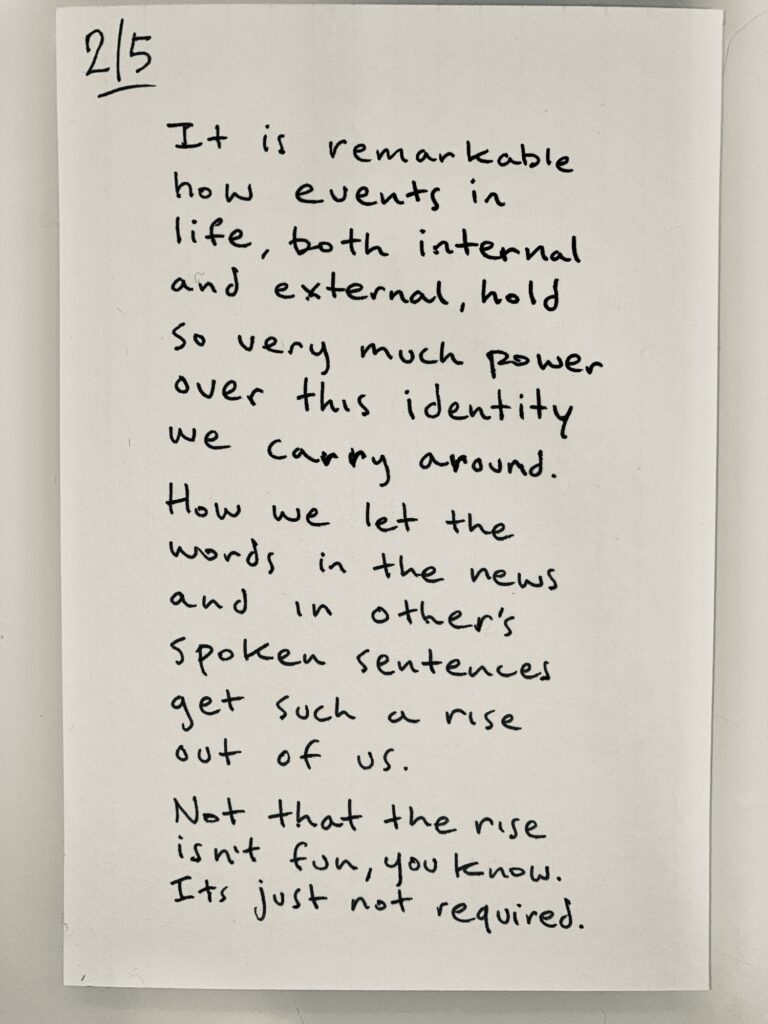 2/5
It is remarkable
how events in
life, both internal
and external, hold
so very much power
over this identity
we carry around.
How we let the
words in the news
and in other's
spoken sentences
get such a rise
out of us.
Not that the rise
isn't fun, you know.
Its just not required.